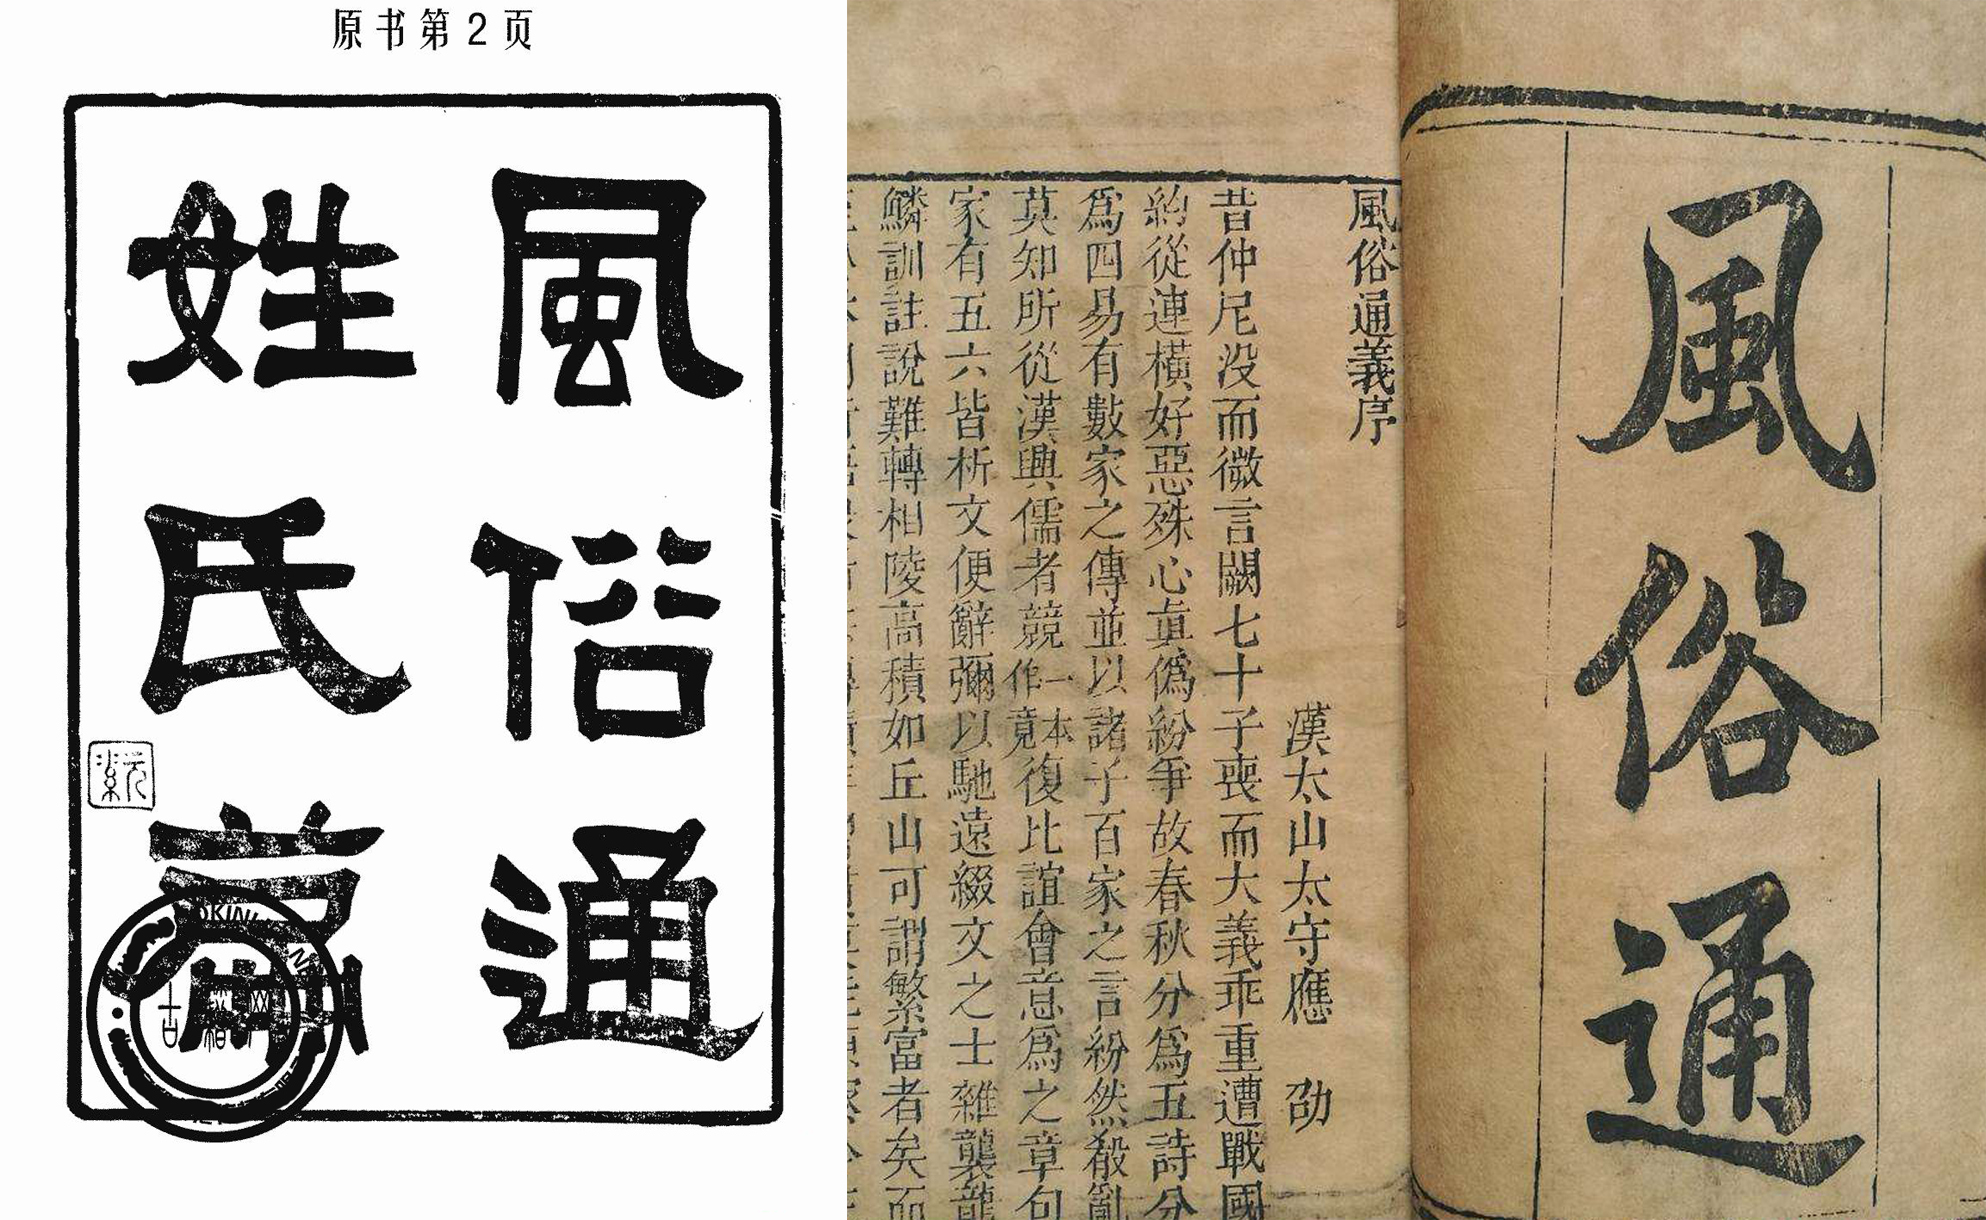 原书第2页
風俗通
姓氏篇
風俗通
風俗通義序
漢太山太守應劭
昔仲尼没而微言闕七十子喪而大義乖重遭戰國
約從連橫好惡殊心眞僞紛爭故春秋分爲五詩分
爲四易有數家之傳並以諸子百家之言紛然殽亂
莫知所從漢興儒者競一本作竟復比誼會意爲之章句
家有五六皆析文便辭彌以馳遠綴文之士雜襲龍
鱗訓註說難轉相陵高積如丘山可謂繁富者矣而